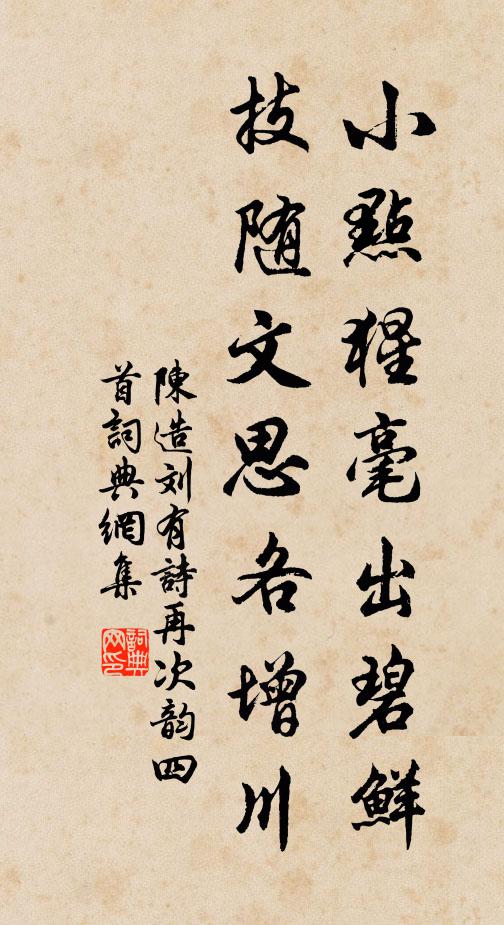 小點猩毫出碧鮮
技随文思各增川
陳造刘有詩再次韵四
首詞典網集
詞典
网印